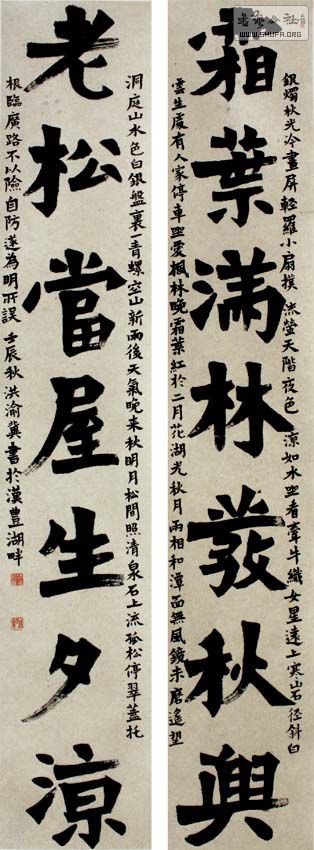 書藝公社
WWW.SHUFA.ORG
銀燭秋光冷畫屏輕羅小扇撲流螢天階夜色涼如水坐看牽牛織女星遠上寒山石径斜白
霜葉滿林發秋興
雲生處有人家停車坐愛楓林晚霜葉紅於二月花湖光秋月兩相和潭面無風鏡未磨遙望
洞庭山水色白銀盤裏一青螺空山新雨後天氣晚来秋明月松間照清泉石上流孤松停翠蓋托
老松當屋生夕涼
根臨廣路不以險自防遂為明所誤 壬辰秋洪渝冀書於漢豐湖畔